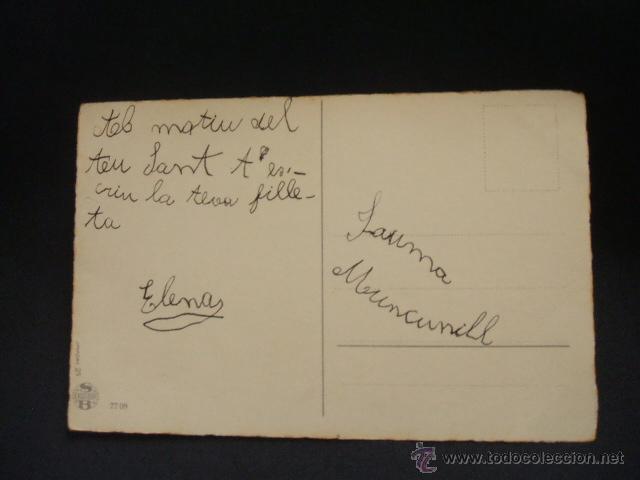 Ab motiu del
teu Sant t' es-
criu la teva fille-
ta
Elena
Jauma
Muncunill
S
B
2709
www.todocoleccion.net